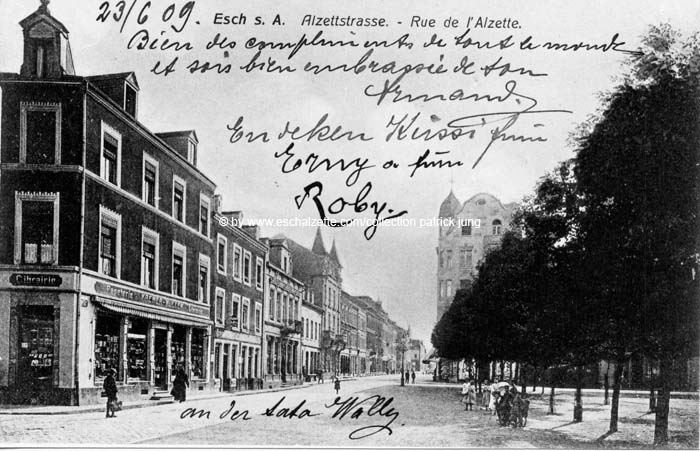 23/6 09.
Esch s. A. Alzettstrasse. - Rue de l'Alzette.
Bien des compliments de tout le monde
et sois bien embrassée de ton
Armand.
En deken Kussi fum
Erny a fum
Roby.
© by www.eschalzette.com/collection patrick jung
Librairie
an der tata Wally